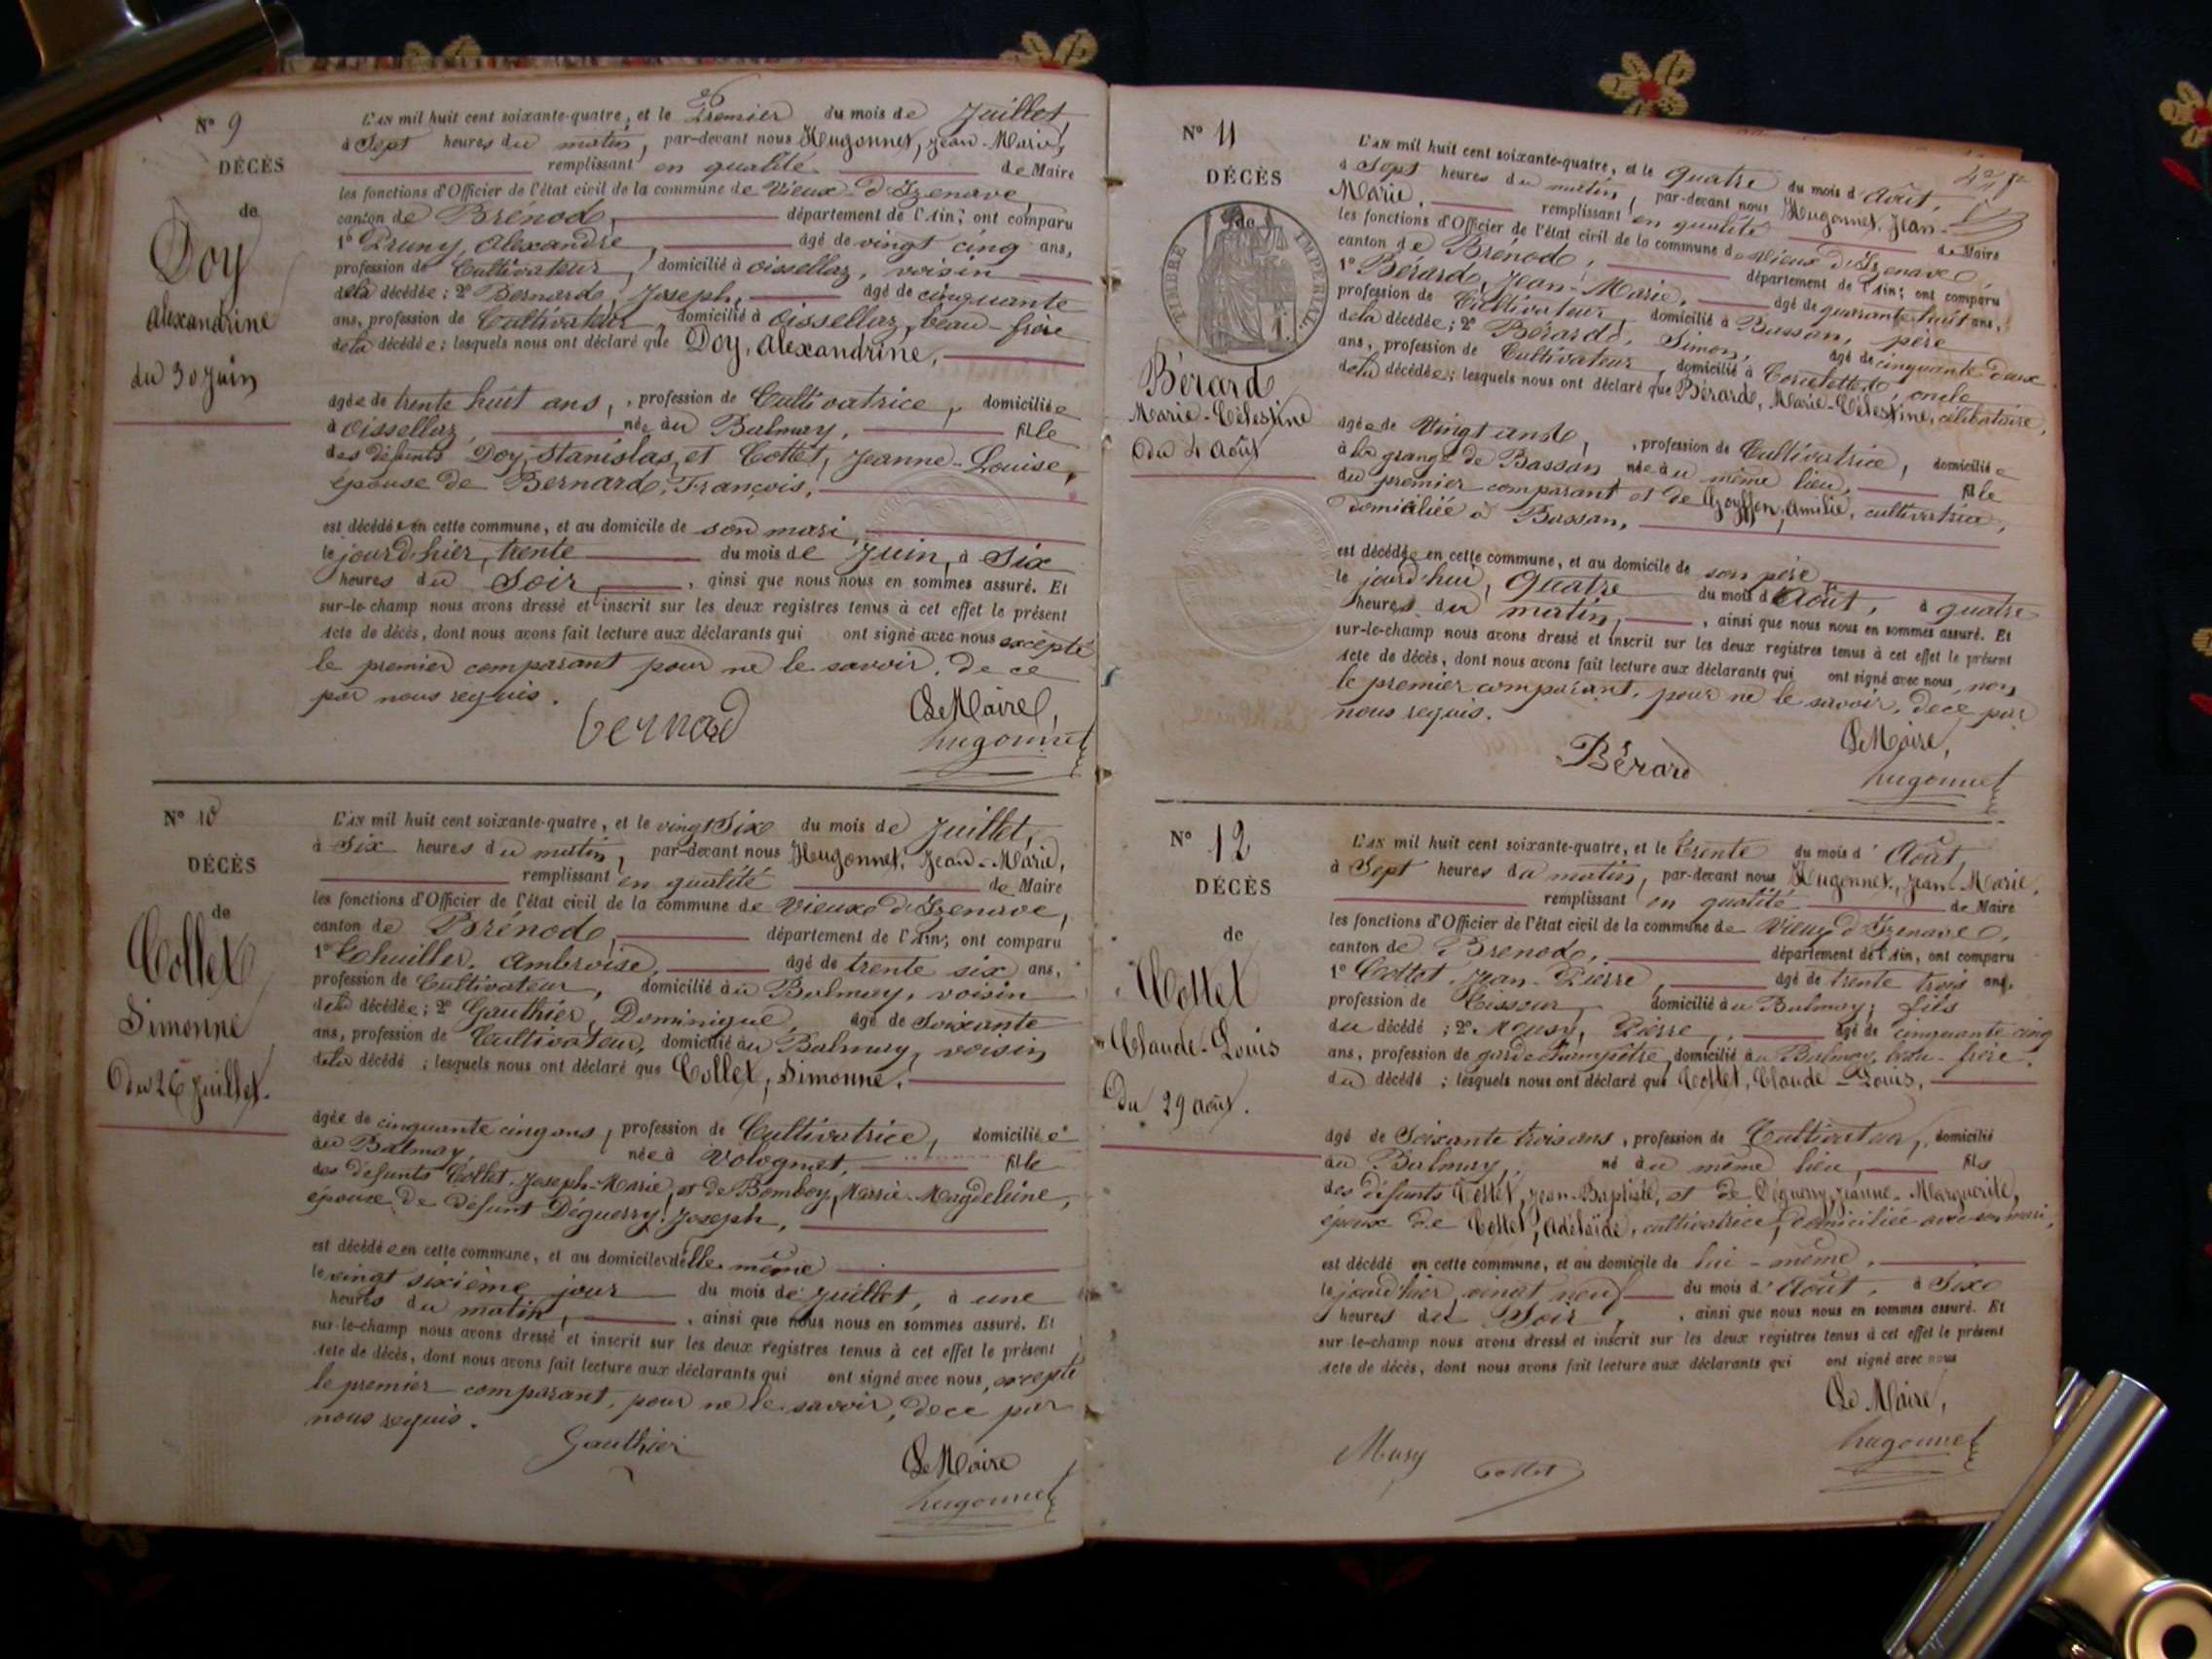 N° 9
DÉCÈS
de
Doy
Alexandrine
du 30 Juin
L'AN mil huit cent soixante-quatre, et le Premier du mois de Juillet,
à Sept heures du matin, par-devant nous Hugonnet, Jean-Marie,
remplissant en qualité de Maire
les fonctions d'Officier de l'état civil de la commune de Vieux-d'Izenave,
canton de Brénod, département de l'Ain; ont comparu
1° Pruny, Alexandre, âgé de vingt cinq ans,
profession de Cultivateur, domicilié à Oissellaz, voisin
de la décédée; 2° Bernard, Joseph, âgé de cinquante
ans, profession de Cultivateur, domicilié à Oissellaz, beau-frère
de la décédée; lesquels nous ont déclaré que Doy, Alexandrine,
âgée de trente huit ans, profession de Cultivatrice, domiciliée
à Oissellaz, née au Balmay, fille
des défunts Doy, Stanislas, et Cottet, Jeanne-Louise,
épouse de Bernard, François,
est décédée en cette commune, et au domicile de son mari,
le jourd'hier, trente du mois de Juin, à Six
heures du Soir, ainsi que nous nous en sommes assuré. Et
sur-le-champ nous avons dressé et inscrit sur les deux registres tenus à cet effet le présent
Acte de décès, dont nous avons fait lecture aux déclarants qui ont signé avec nous excepté
le premier comparant pour ne le savoir, de ce
par nous requis.
Bernard
Le Maire,
hugonnet
N° 10
DÉCÈS
de
Collet
Simonne
Du 26 Juillet.
L'AN mil huit cent soixante-quatre, et le vingt Six du mois de Juillet,
à Six heures du matin, par-devant nous Hugonnet, Jean-Marie,
remplissant en qualité de Maire
les fonctions d'Officier de l'état civil de la commune de Vieux d'Izenave,
canton de Brénod, département de l'Ain; ont comparu
1° Lhuiller, Ambroise, âgé de trente six ans,
profession de Cultivateur, domicilié au Balmay, voisin
de la décédée; 2° Gauthier, Dominique, âgé de Soixante
ans, profession de Cultivateur, domicilié au Balmay, voisin
de la décédé ; lesquels nous ont déclaré que Collet, Simonne,
âgée de cinquante cinq ans, profession de Cultivatrice, domiciliée
au Balmay, née à Volognat, fille
des défunts Collet, Joseph-Marie, et de Bomboy, Marie-Magdeleine,
épouse de défunt Déguerry, Joseph,
est décédée en cette commune, et au domicile d'elle même
le vingt sixième jour du mois de Juillet, à une
heures du matin, ainsi que nous nous en sommes assuré. Et
sur-le-champ nous avons dressé et inscrit sur les deux registres tenus à cet effet le présent
Acte de décès, dont nous avons fait lecture aux déclarants qui ont signé avec nous, excepté
le premier comparant, pour ne le savoir, de ce par
nous requis.
Gauthier
Le Maire
hugonnet
N° 11
DÉCÈS
de
TIMBRE IMPÉRIAL.
Bérard
Marie-Célestine
Du 4 Août
L'AN mil huit cent soixante-quatre, et le Quatre du mois d'Août,
à Sept heures du matin, par-devant nous Hugonnet, Jean-
Marie, remplissant en qualité de Maire
les fonctions d'Officier de l'état civil de la commune de Vieux d'Izenave,
canton de Brénod, département de l'Ain; ont comparu
1° Bérard, Jean-Marie, âgé de quarante huit ans,
profession de Cultivateur, domicilié à Bassan, père
de la décédée; 2° Bérard, Simon, âgé de cinquante deux
ans, profession de Cultivateur, domicilié à oncle
de la décédée; lesquels nous ont déclaré que Bérard, Marie-Célestine, célibataire,
âgée de Vingt ans, profession de Cultivatrice, domiciliée
à la grange de Bassan née au même lieu, fille
du premier comparant et de Goyffon, Amélie, cultivatrice,
domiciliée à Bassan,
est décédée en cette commune, et au domicile de son père
le jourd'hui, Quatre du mois d'Août, à quatre
heures du matin, ainsi que nous nous en sommes assuré. Et
sur-le-champ nous avons dressé et inscrit sur les deux registres tenus à cet effet le présent
Acte de décès, dont nous avons fait lecture aux déclarants qui ont signé avec nous, non
le premier comparant, pour ne le savoir, de ce par
nous requis.
Bérard
Le Maire,
hugonnet
N° 12
DÉCÈS
de
Cottet
Claude-Louis
Du 29 Août.
L'AN mil huit cent soixante-quatre, et le trente du mois d'Août,
à Sept heures du matin, par-devant nous Hugonnet, Jean-Marie,
remplissant en qualité de Maire
les fonctions d'Officier de l'état civil de la commune de Vieux d'Izenave,
canton de Brénod, département de l'Ain, ont comparu
1° Cottet, Jean-Pierre, âgé de trente trois ans,
profession de Tisseur, domicilié au Balmay; fils
du décédé ; 2° Musy, Pierre, âgé de cinquante cinq
ans, profession de garde champêtre, domicilié au Balmay, beau-frère,
du décédé ; lesquels nous ont déclaré que Cottet, Claude-Louis,
âgé de Soixante trois ans, profession de Cultivateur, domicilié
au Balmay, né au même lieu, fils
des défunts Cottet, Jean-Baptiste, et de Déguerry, Jeanne-Marguerite,
époux de Cottet, Adélaïde, cultivatrice, domiciliée avec son mari,
est décédé en cette commune, et au domicile de lui-même,
le jourd'hier, vingt neuf du mois d'Août, à Six
heures du Soir, ainsi que nous nous en sommes assuré. Et
sur-le-champ nous avons dressé et inscrit sur les deux registres tenus à cet effet le présent
Acte de décès, dont nous avons fait lecture aux déclarants qui ont signé avec nous
Le Maire,
Musy Cottet hugonnet